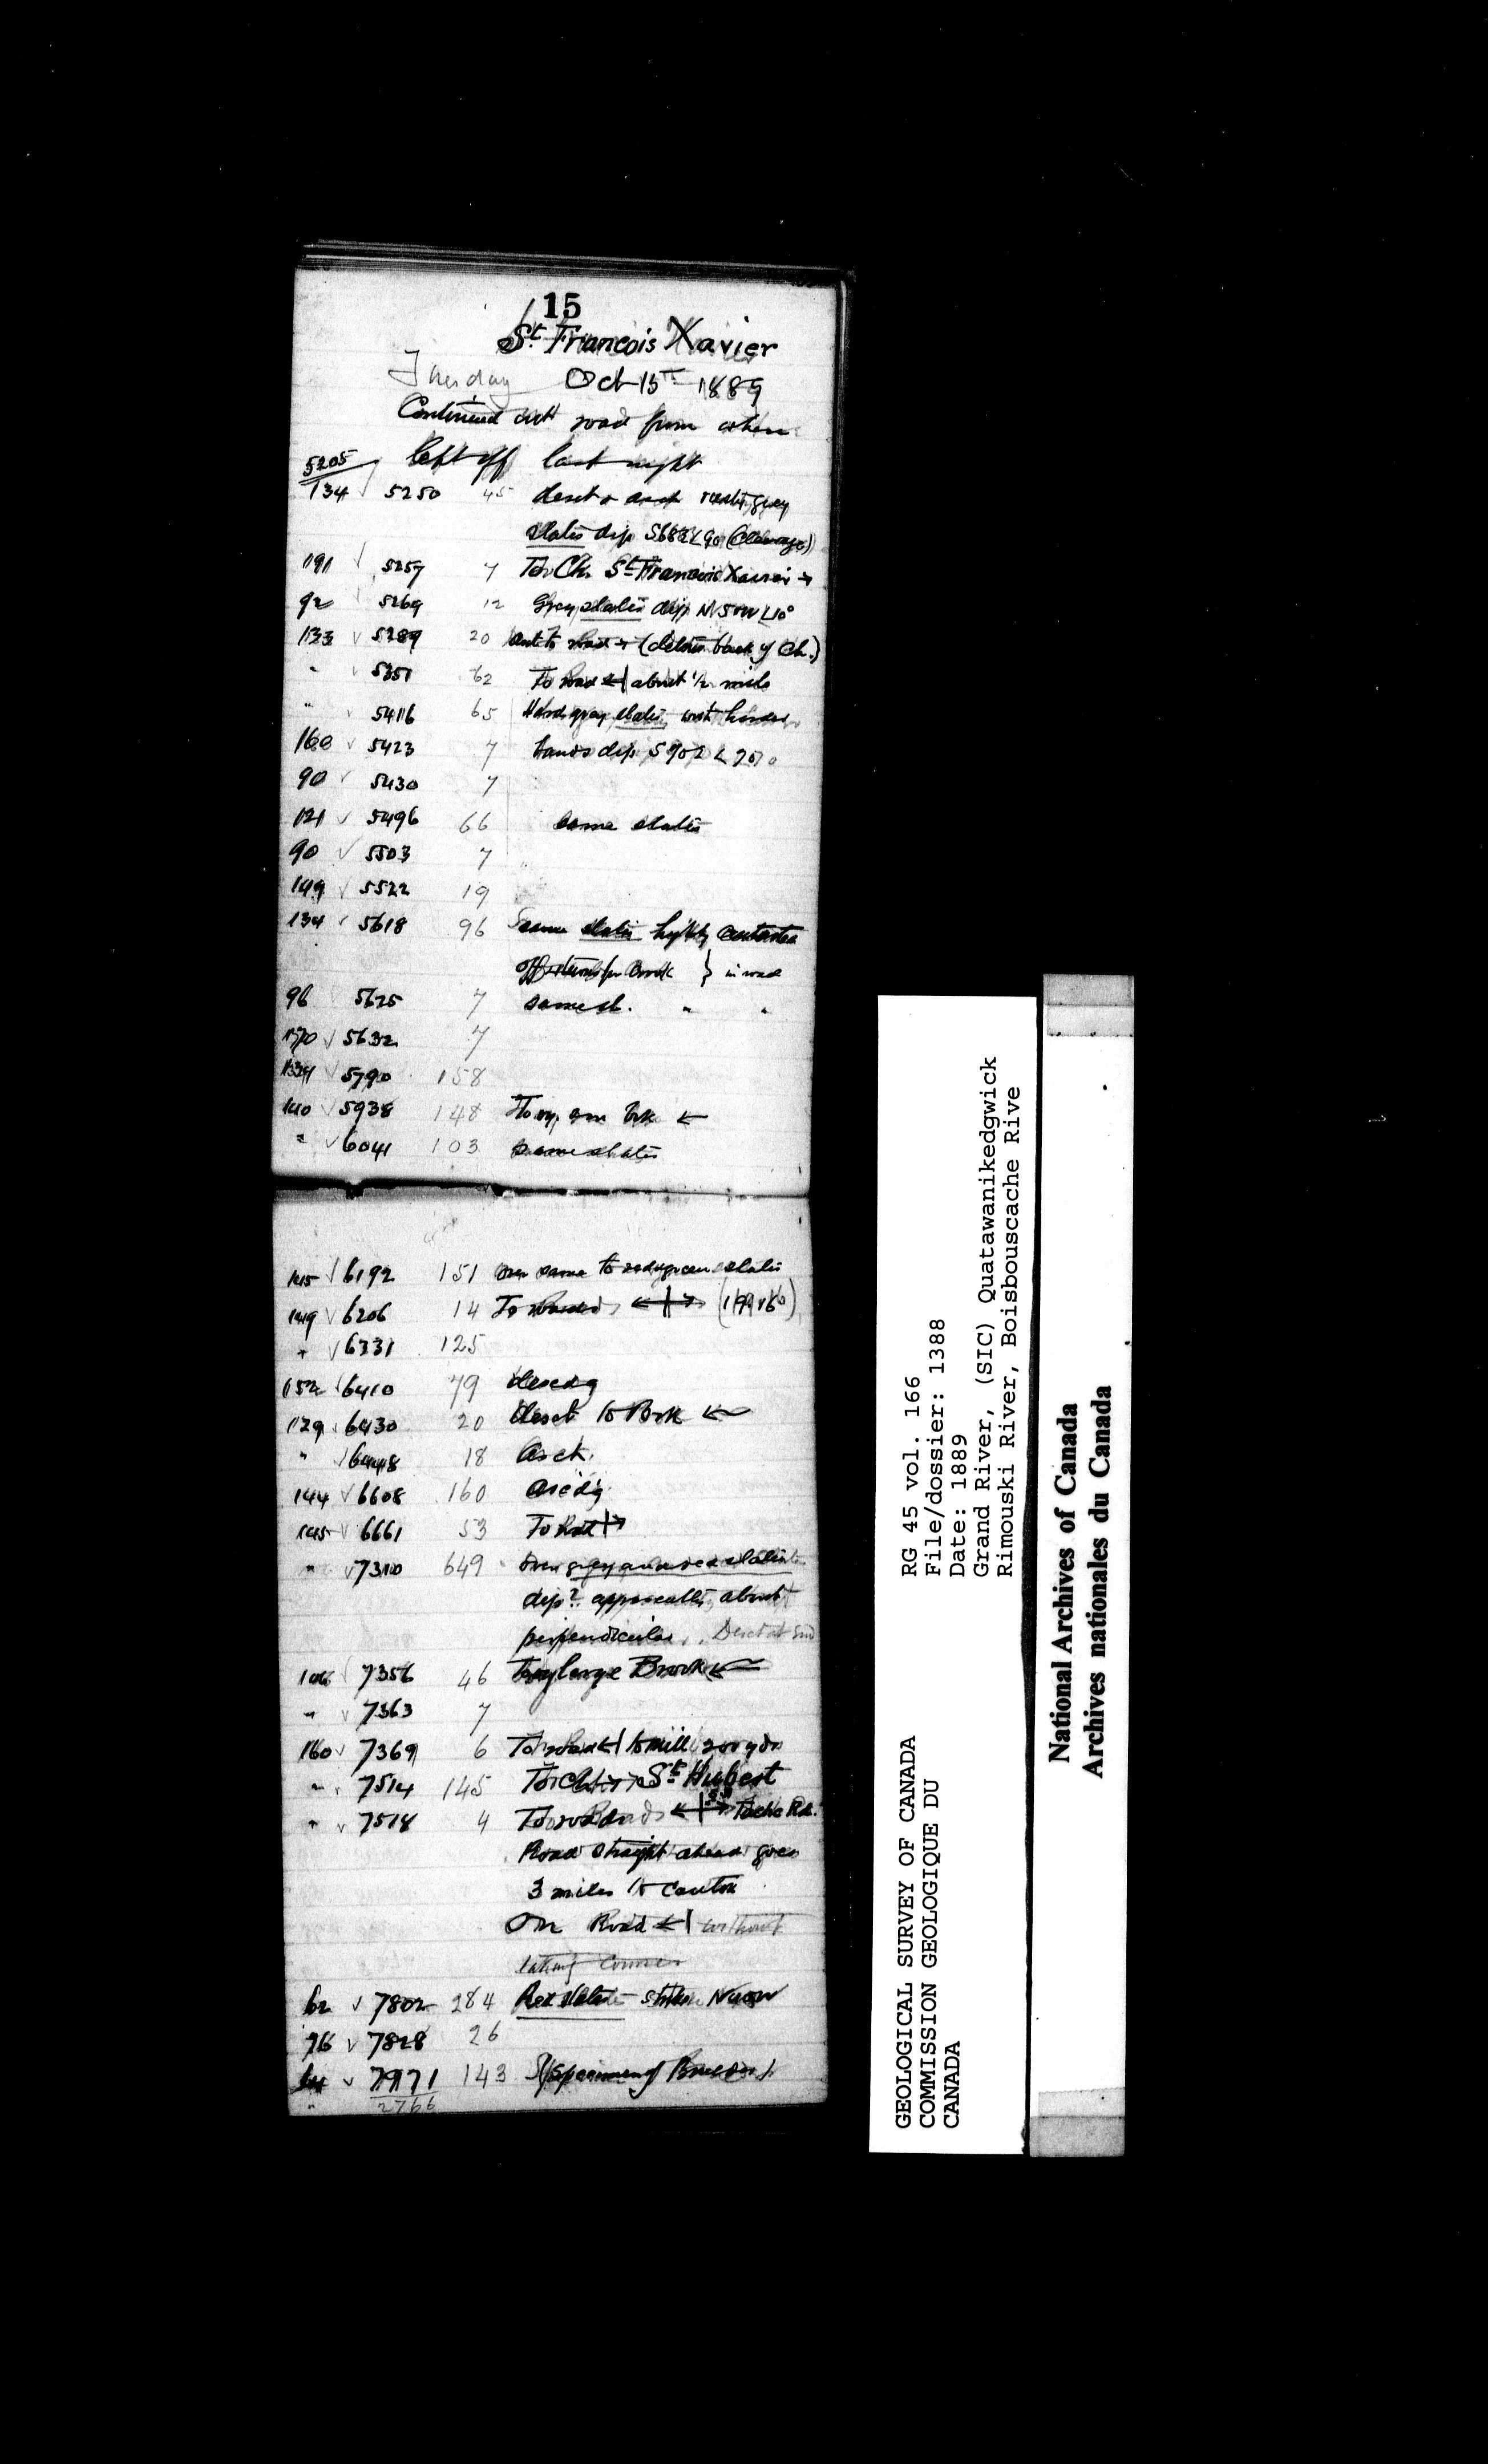 15
St. Francois Xavier
Tuesday Oct 15th 1889
Continued with road from where
5205 left off last night
134 √ 5250 45 desct & asct rusty grey
slates dip S68E<90 (Cleavage)
191 √ 5257 7 To Ch. St Francois Xavier →
92 √ 5269 12 Grey slates dip N50W <10°
133 √ 5289 20 out to road → (detour back of Ch.)
" √ 5351 62 To road ←| about 1/2 mile
" √ 5416 65 Hard grey slates with harder
160 √ 5423 7 bands dip
90 √ 5430 7
121 √ 5496 66 same slates
90 √ 5503 7
149 √ 5522 19
134 √ 5618 96 Same slates highly contorted
} in road
96 5625 7 same sl. " "
170 √ 5632 7
134 √ 5790 158
140 √ 5938 148 To brk ←
" √ 6041 103 same slates
145 √ 6192 151 over same to red & green slates
149 √ 6206 14 To roads ←|→
" √ 6331 125
152 √ 6410 79 descdg
129 √ 6430 20 desct to Brk ←
" √ 6448 18 asct.
144 √ 6608 160 ascdg
145 √ 6661 53 To Rd |→
" √ 7310 649 over grey and red slates
dip? apparently about
perpendicular. Desct at end
106 √ 7356 46 large Brook ←
" √ 7363 7
160 √ 7369 6 To road ←| to mill 200 yds
" √ 7514 145 To Ch. → St Hubert
" √ 7518 4 To roads ←|→ Tache Rd.
Road straight ahead goes
3 miles to
On Road ←| without
taking courses
62 √ 7802 284 Red slates strike
76 √ 7828 26
64 √ 7971 143 Specimen of
" 2766
RG 45 vol. 166
File/dossier: 1388
Date: 1889
Grand River, (SIC) Quatawanikedgwick
Rimouski River, Boisbouscache Rive
GEOLOGICAL SURVEY OF CANADA
COMMISSION GEOLOGIQUE DU
CANADA
National Archives of Canada
Archives nationales du Canada